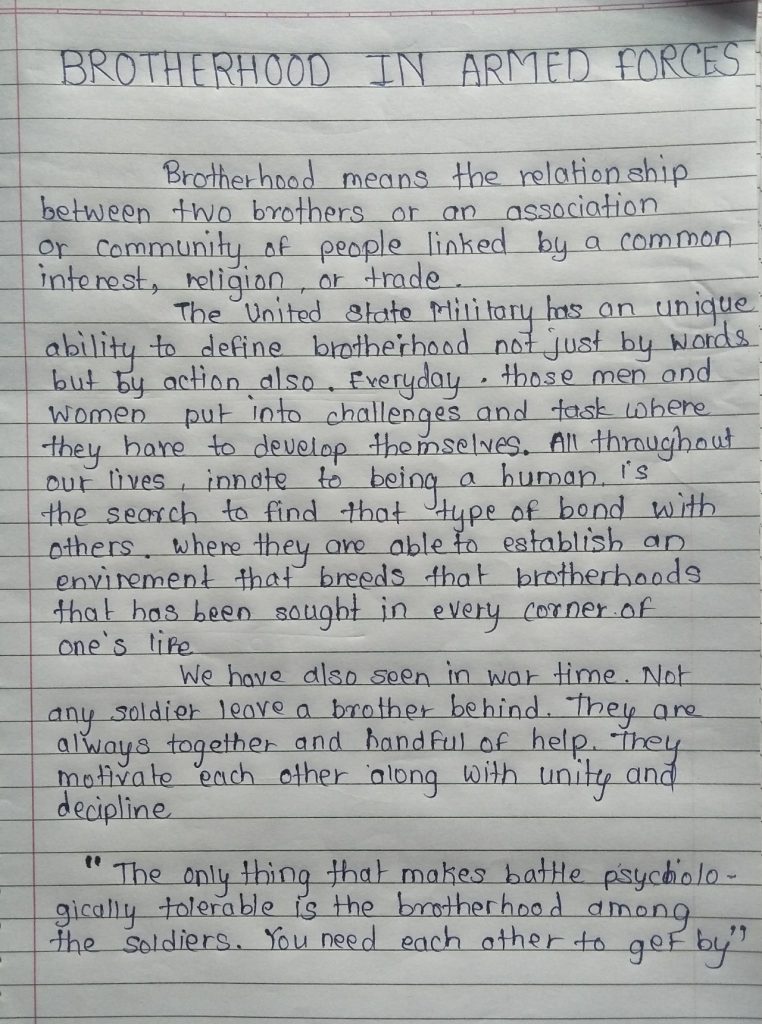 BROTHERHOOD IN ARMED FORCES
Brotherhood means the relationship
between two brothers or an association
or community of people linked by a common
interest, religion, or trade.
The United State Military has an unique
ability to define brotherhood not just by words
but by action also. Everyday. those men and
women put into challenges and task where
they have to develop themselves. All throughout
our lives, innate to being a human, is
the search to find that type of bond with
others. where they are able to establish an
envirement that breeds that brotherhoods
that has been sought in every corner of
one's life
We have also seen in war time. Not
any soldier leave a brother behind. They are
always together and handful of help. They
motivate each other along with unity and
decipline
"The only thing that makes battle psycholo-
gically tolerable is the brotherhood among
the soldiers. You need each other to get by"